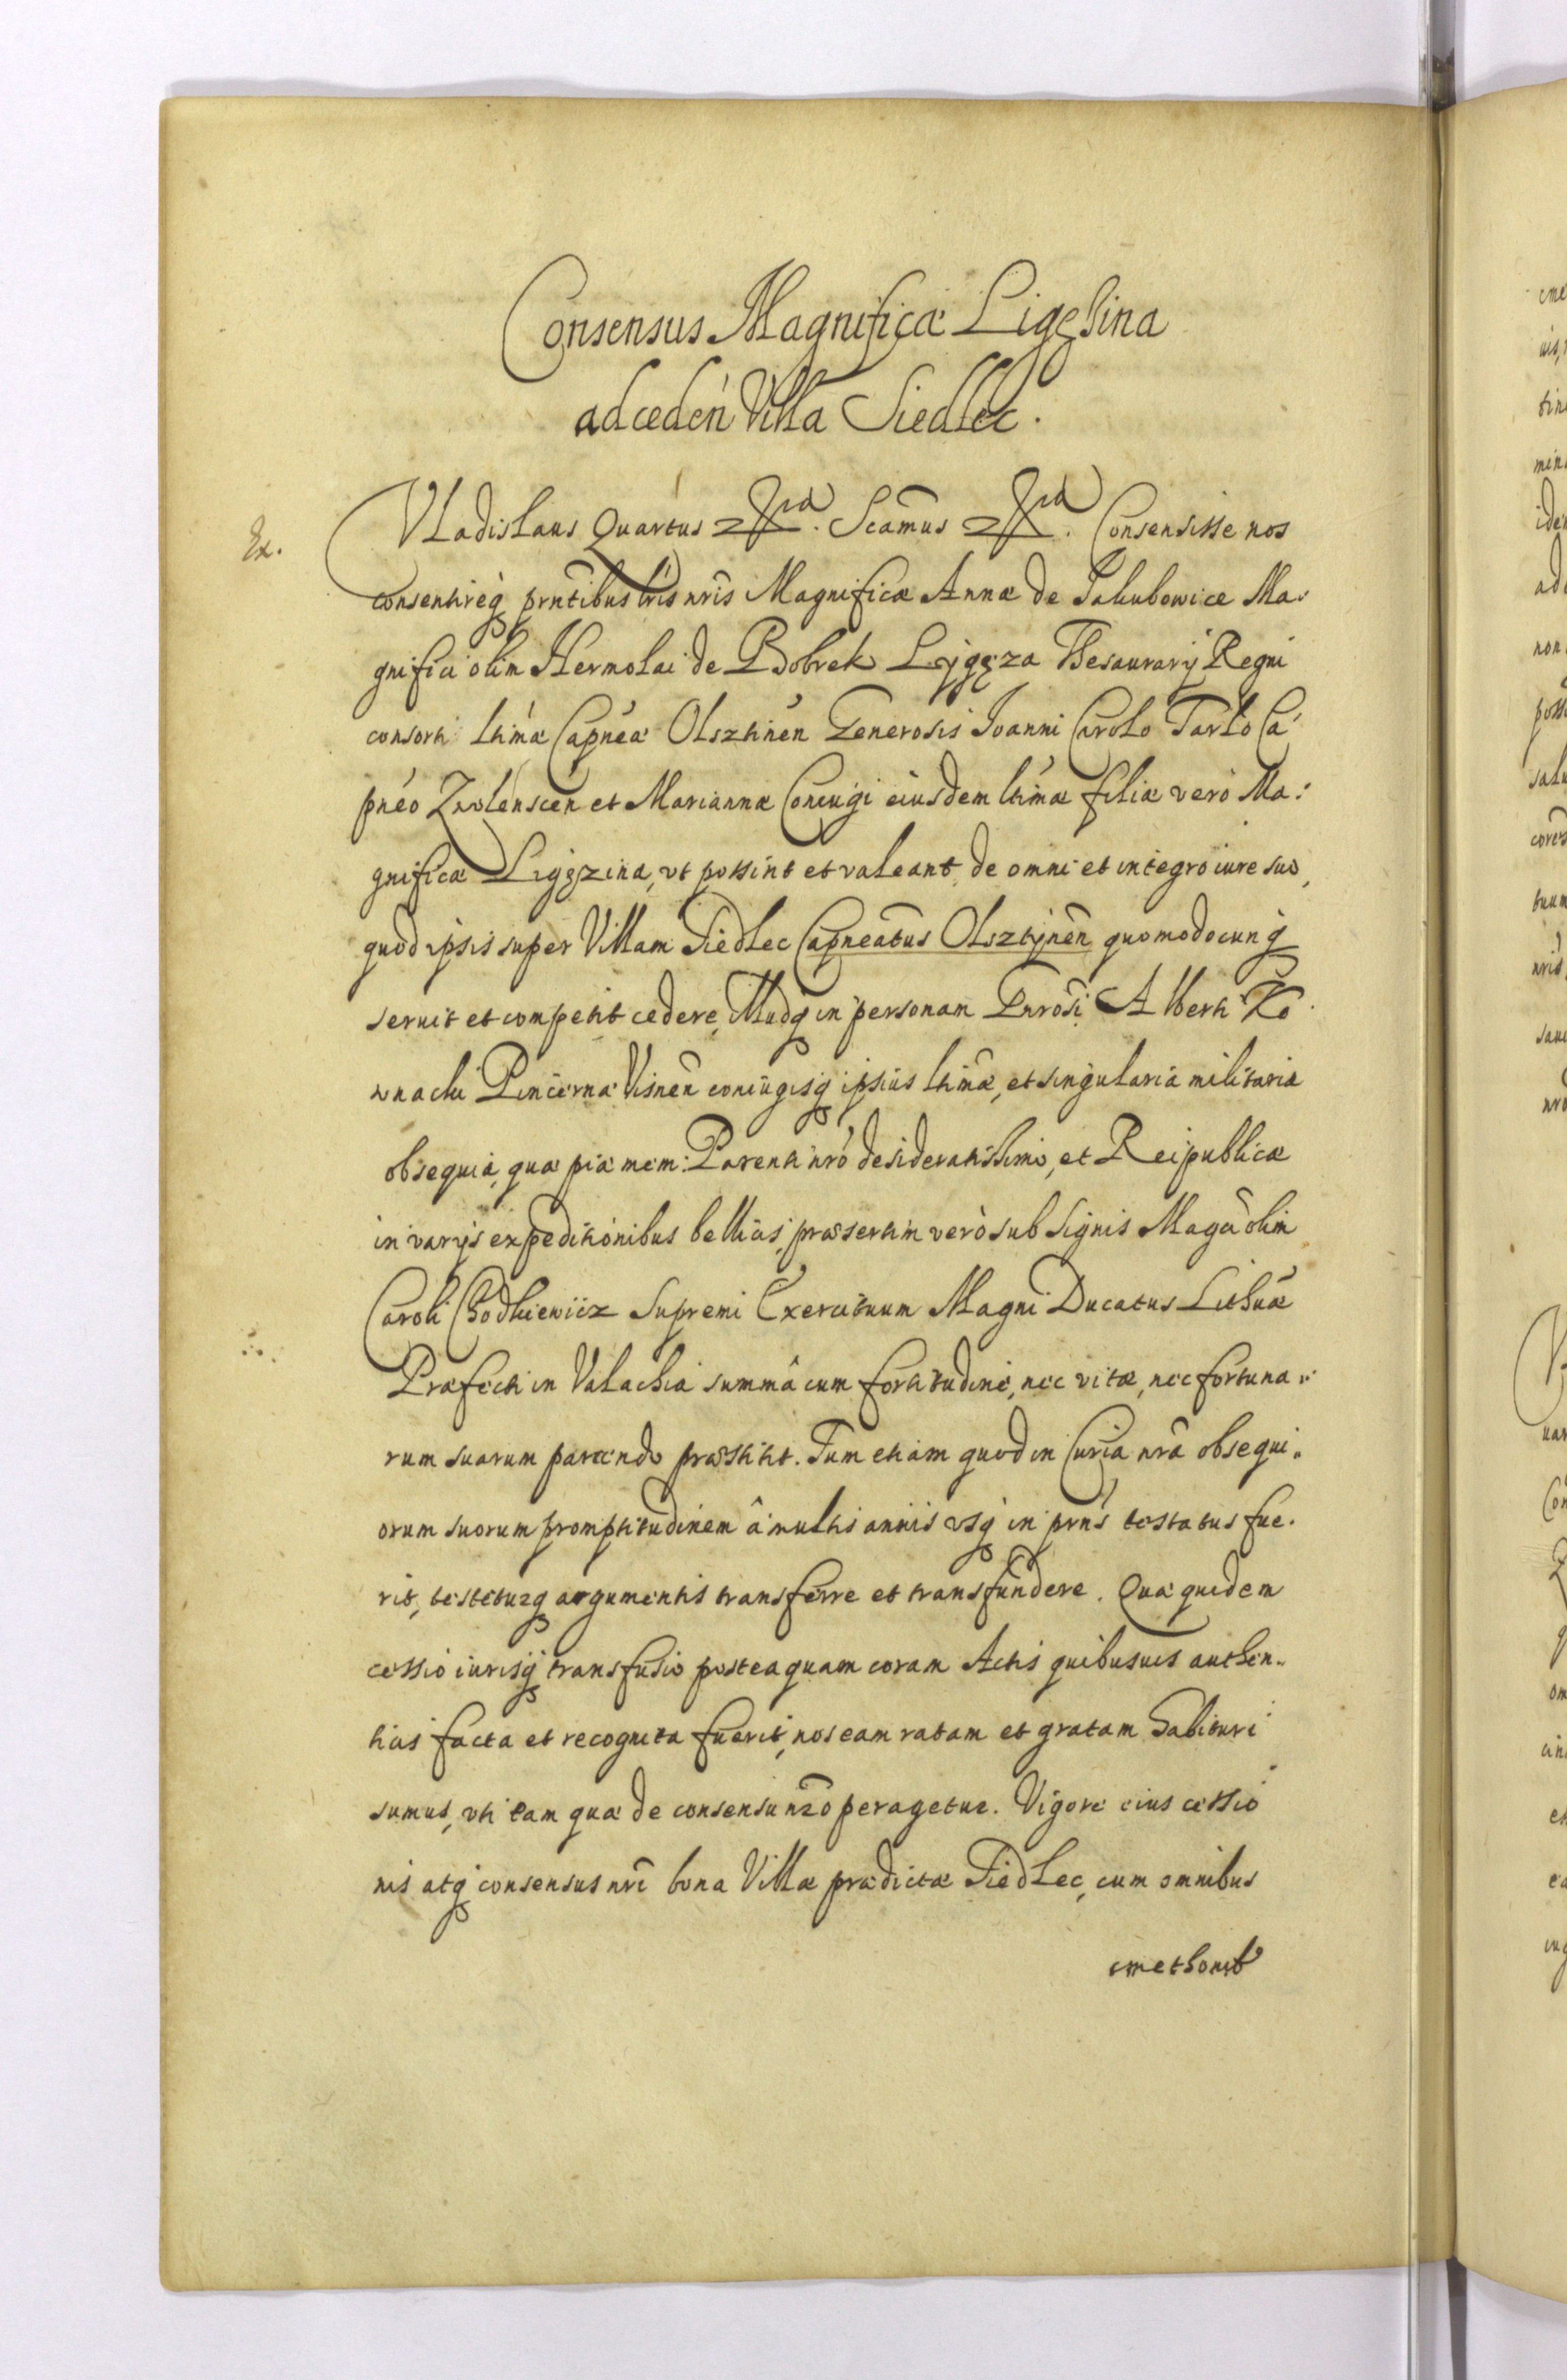 Consensus Magnificæ Ligęzina
ad ceden Villa Siedlec.
Ex.
Vladislaus Quartus Scamus Consensisse nos
consentireq prntibus lris nris Magnificæ Annæ de Jakubowice Ma-
gnifici olim Hermolai de Bobrek Lygęza Thesaurarij Regni
consorti ltimæ Capneæ Olsztinen Generosis Joanni Carolo Tarlo Ca
pneo Zwolenscen et Mariannæ Coniugi eiusdem ltimæ filiæ vero Ma:
gnificæ Ligęzina, vt possint et valeant de omni et integro iure suo,
quod ipsis super Villam Siedlec Capneatus Olsztynen quomodocunq
seruit et competit cedere, illudq in personam Gnrosi Alberti Ko
wnacki Pincerna Visnen coniugisq ipsius ltimæ, et singularia militaria
obsequia, quæ piæ mem: Parenti nro desideratissimo, et Reipublicæ
in varijs expeditionibus bellicis, præsertim verò sub signis Magci olim
Caroli Chodkiewicz Supremi Exercituum Magni Ducatus Lithuæ
Præfecti in Valachia summâ cum fortitudine, nec vitæ, nec fortuna„
rum suarum parcendo præstitit. Tum etiam quod in Curia nrâ obsequi„
orum suorum promptitudinem â multis annis vsq in prns testatus fue-
rit, testeturq argumentis transferre et transfundere. Quæ quidem
cessio iurisq transfusio posteaquam coram Actis quibusuis authen-
ticis facta et recognita fuerit, nos eam ratam et gratam habituri
sumus, vti eam quæ de consensu nro peragetur. Vigore eius cessio
nis atq consensus nri bona Villæ prædictæ Siedlec, cum omnibus
cmethonib